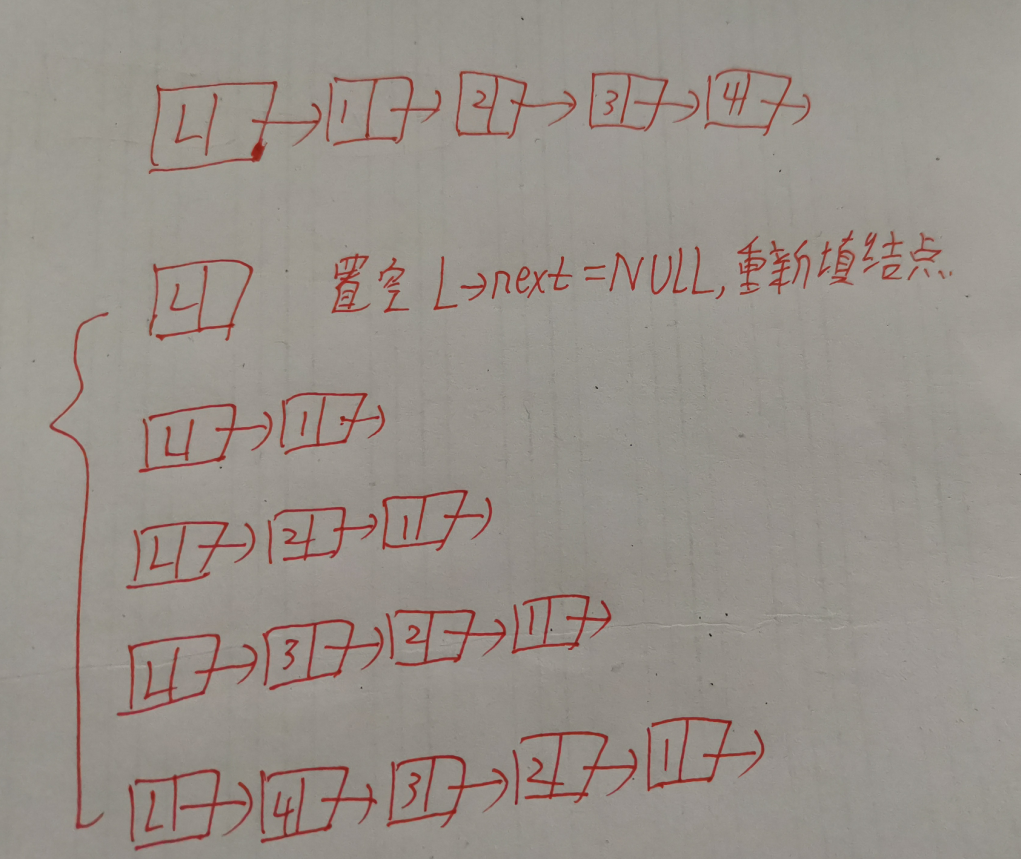 L 1 2 3 4
L 置空 L→next=NULL,重新填结点.
L 1
L 2 1
L 3 2 1
L 4 3 2 1